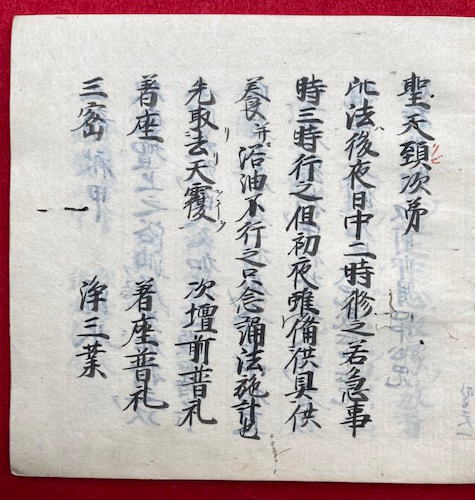 聖天頚次第
此法後夜日中二時修之若急事
時三時行之但初夜雖備供具供
養并浴油不行之只念誦法施計也
先取去天覆 次壇前普礼
着座 着座普礼
三密 浄三業